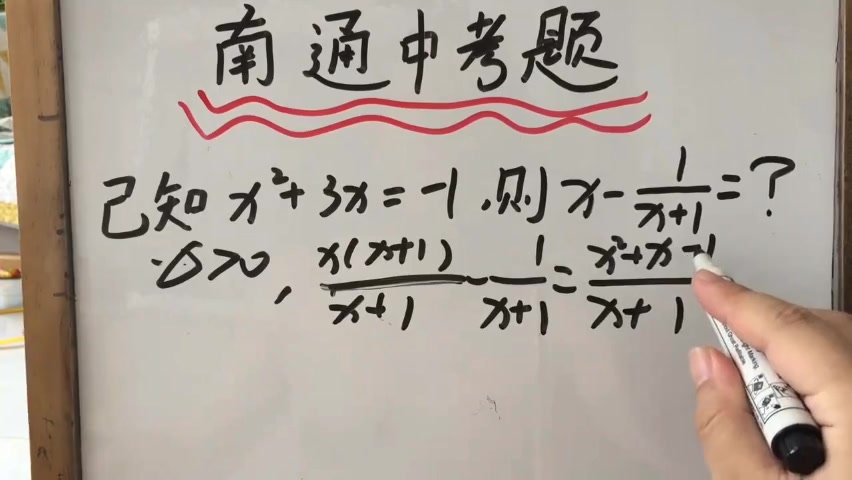 南通中考题
已知 x²+3x=-1,则 x-\frac{1}{x+1}=?
∴△>0, \frac{x(x+1)}{x+1}-\frac{1}{x+1}=\frac{x²+x-1}{x+1}